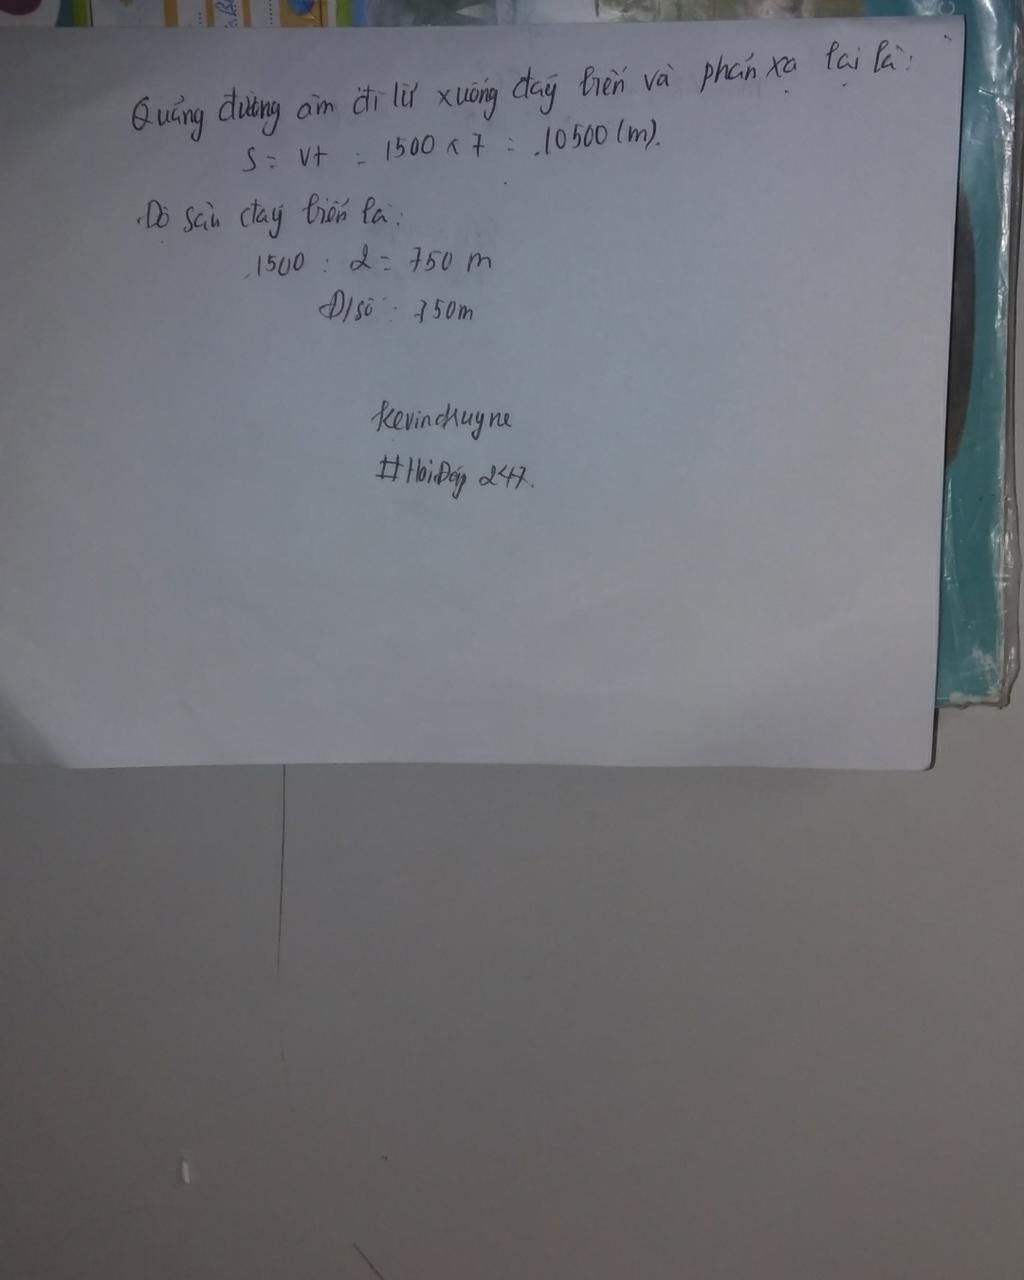 Quảng đường âm đi từ xuống đaý biến và phán xạ lại là:
S = vt = 1500 x 7 = 10500 (m).
Độ sâu đaý biến là:
1500 : 2 = 750 m
Đ/số: 750m
Kevinchuyne
#HoiĐáp 247.